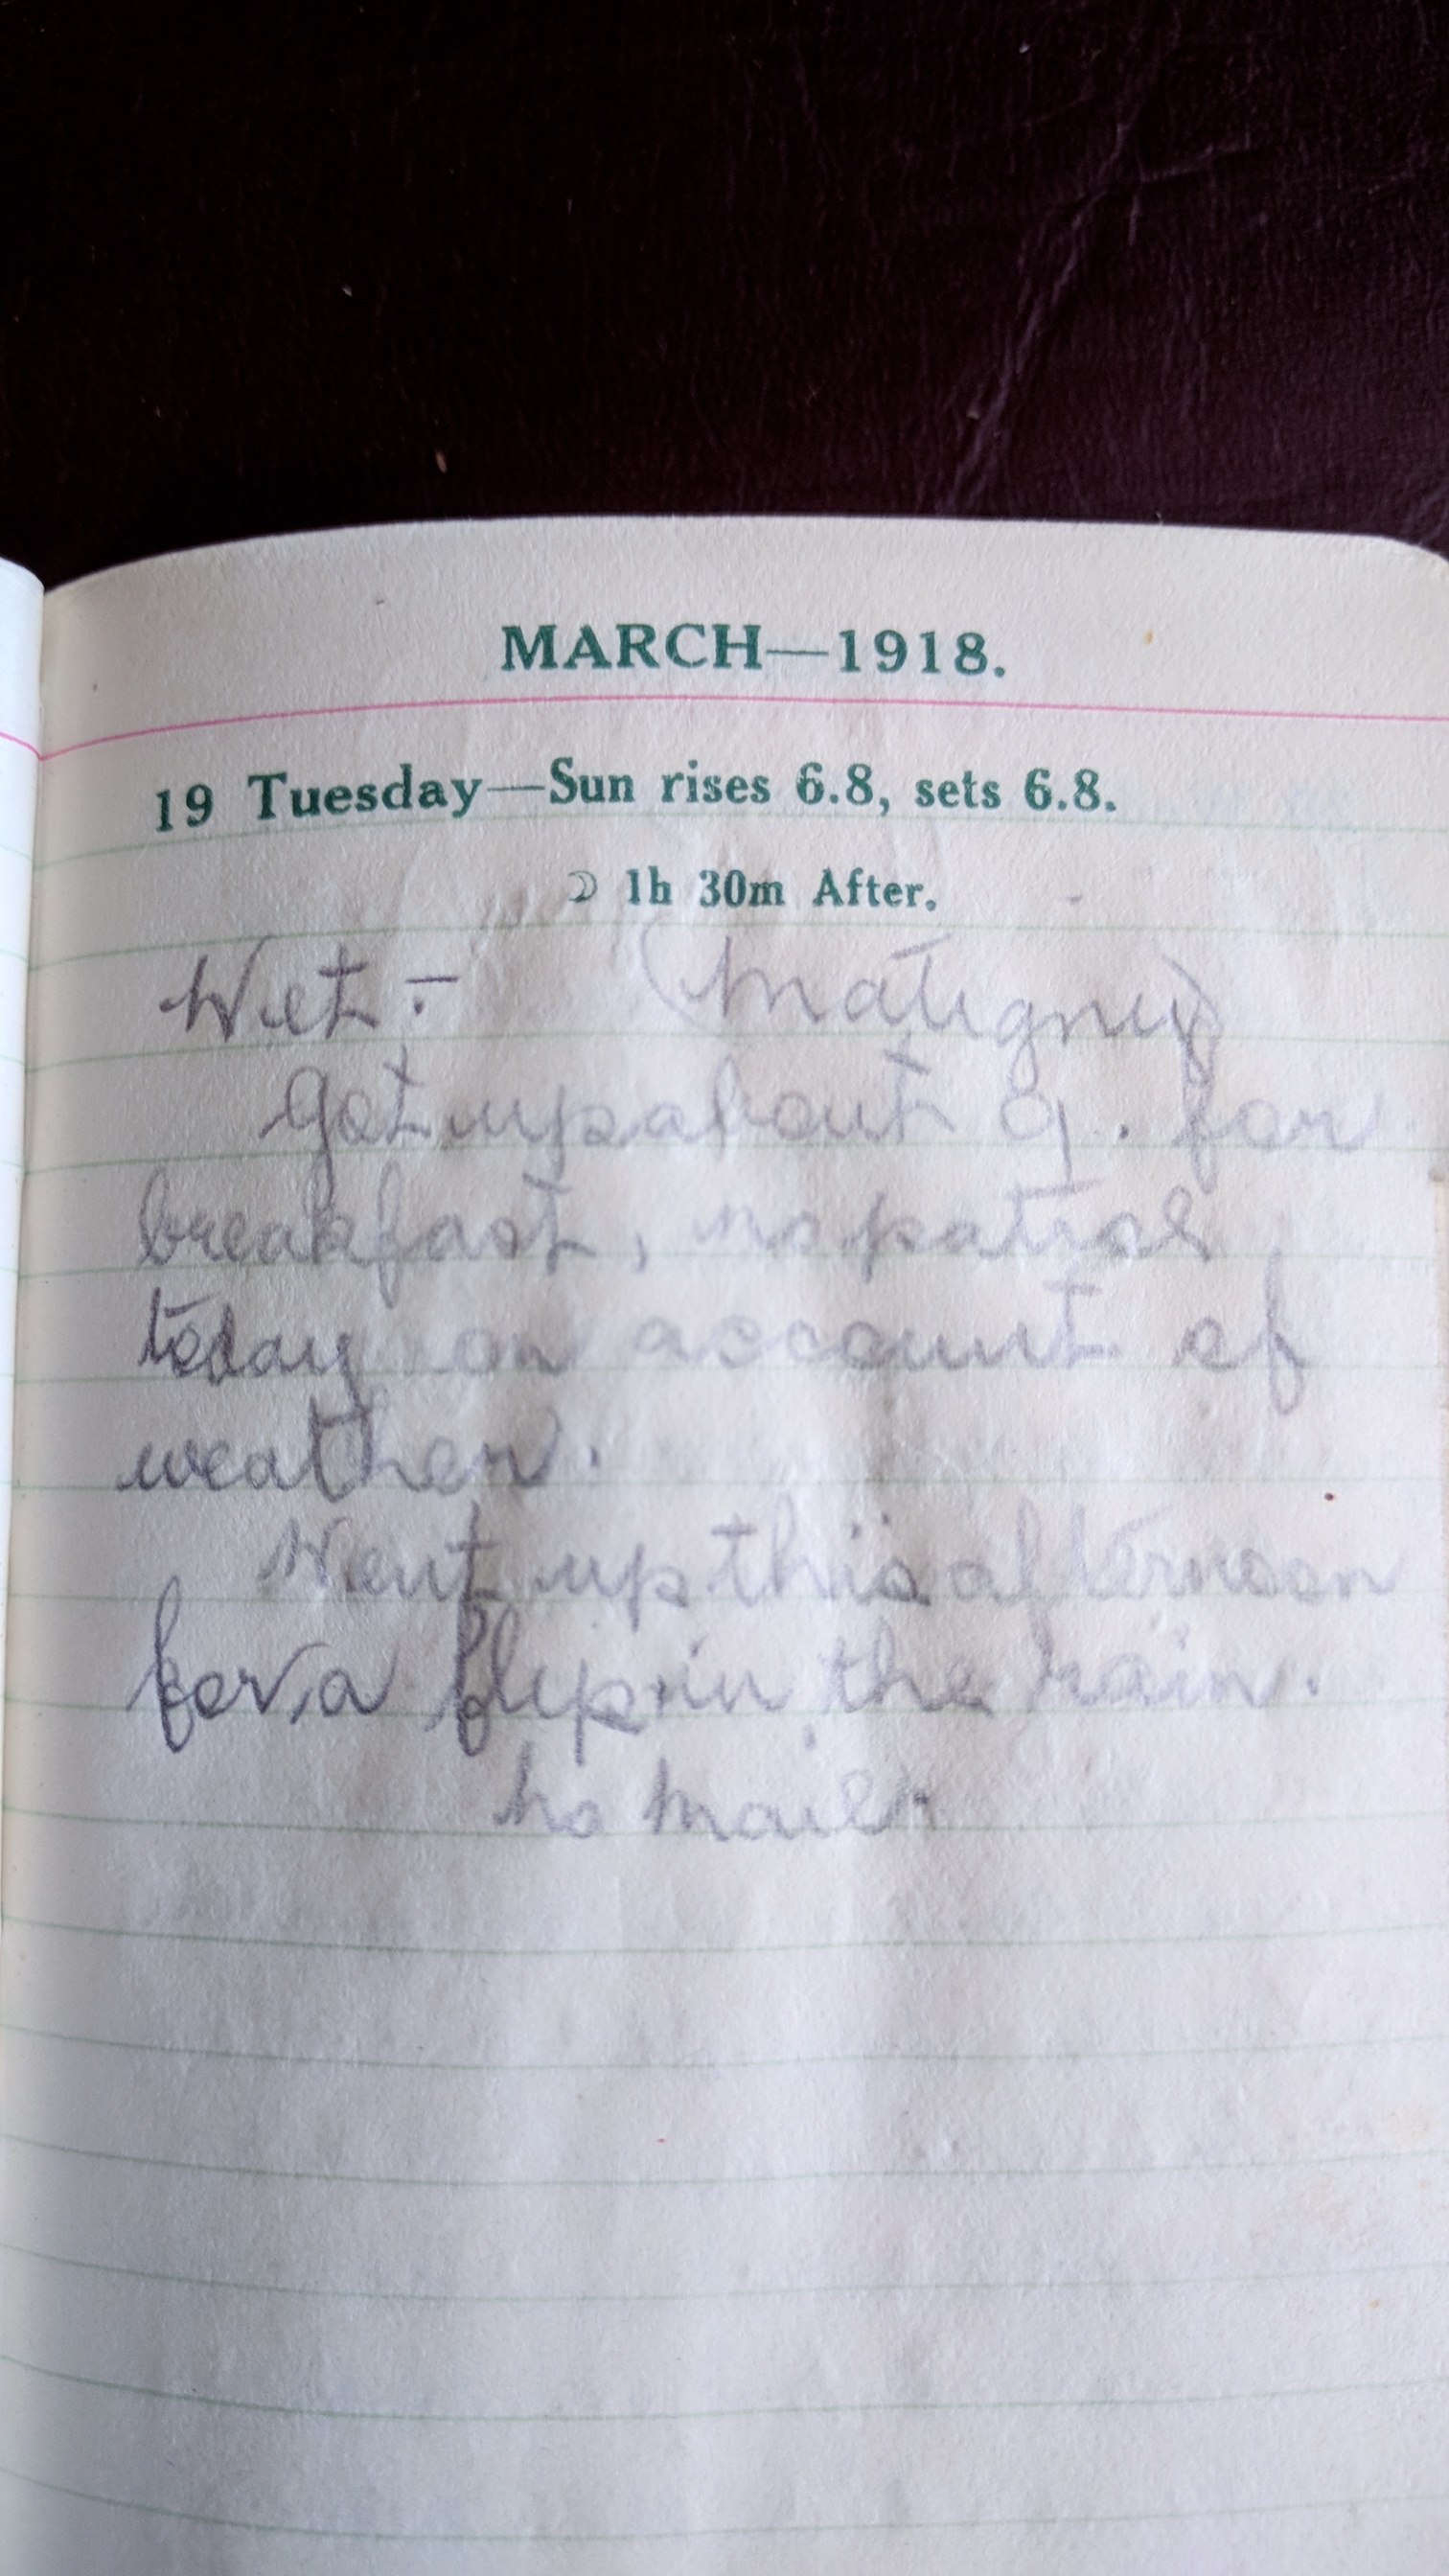 MARCH—1918.
19 Tuesday—Sun rises 6.8, sets 6.8.
☽ 1h 30m After.
Wet :- (Matigny)
Got up about 9. for
breakfast, no patrol
today on account of
weather.
Went up this afternoon
for a flip in the rain.
No mail.